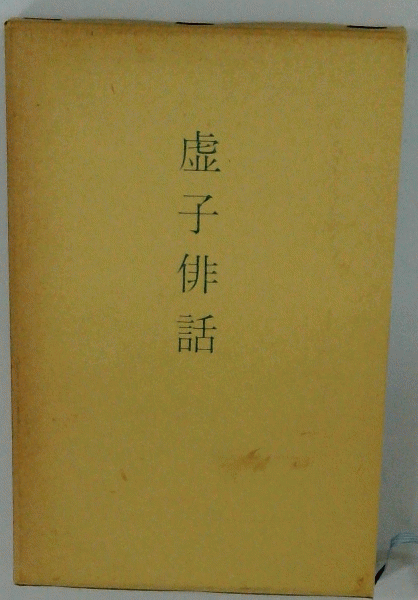 虚子俳話